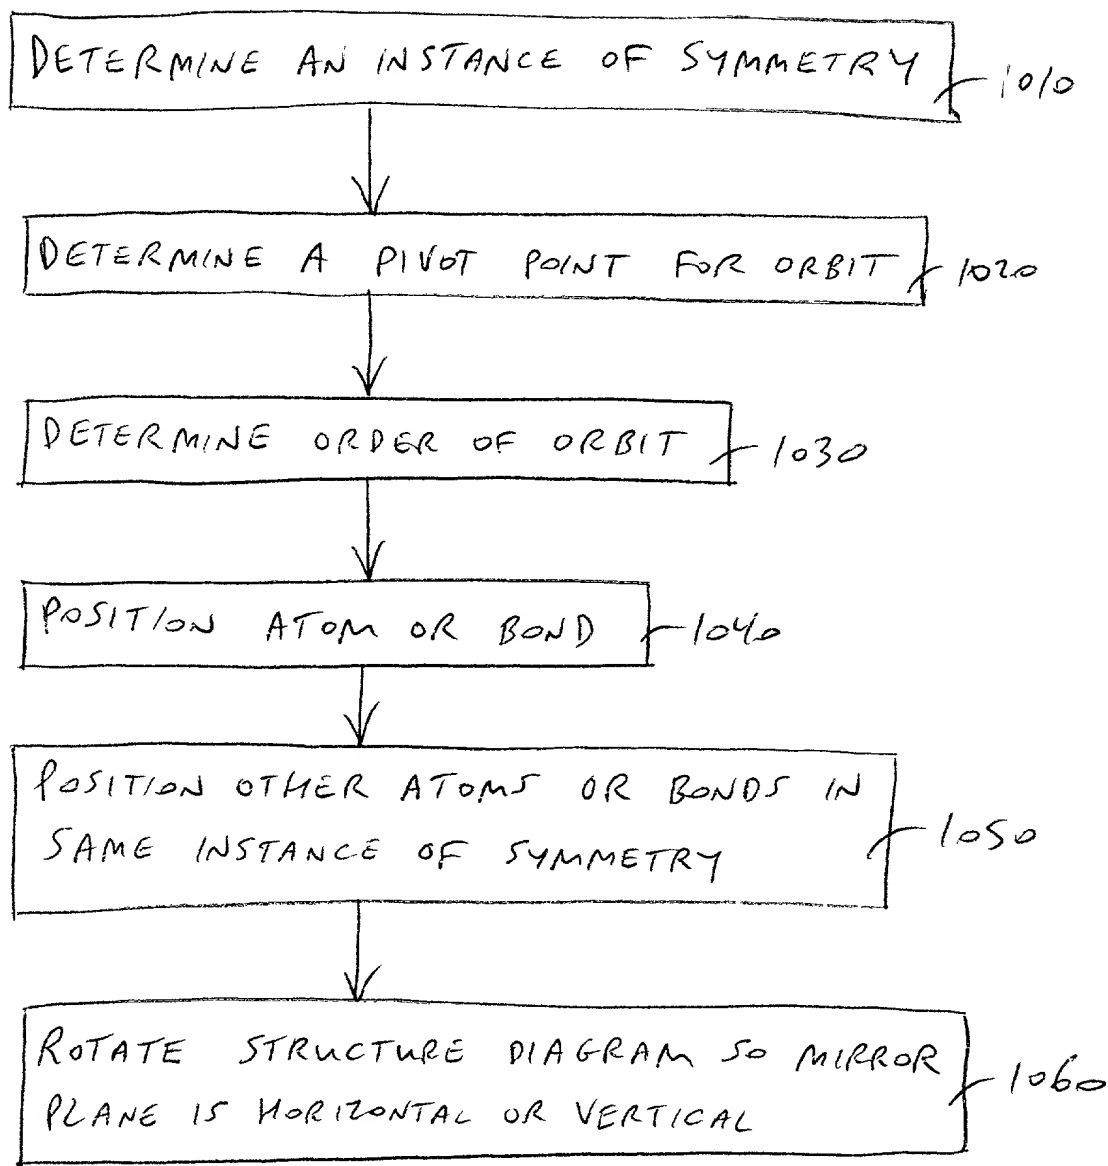 DETERMINE AN INSTANCE OF SYMMETRY
1010
DETERMINE A PIVOT POINT FOR ORBIT
1020
DETERMINE ORDER OF ORBIT
1030
POSITION ATOM OR BOND
1040
POSITION OTHER ATOMS OR BONDS IN
SAME INSTANCE OF SYMMETRY
1050
ROTATE STRUCTURE DIAGRAM SO MIRROR
PLANE IS HORIZONTAL OR VERTICAL
1060